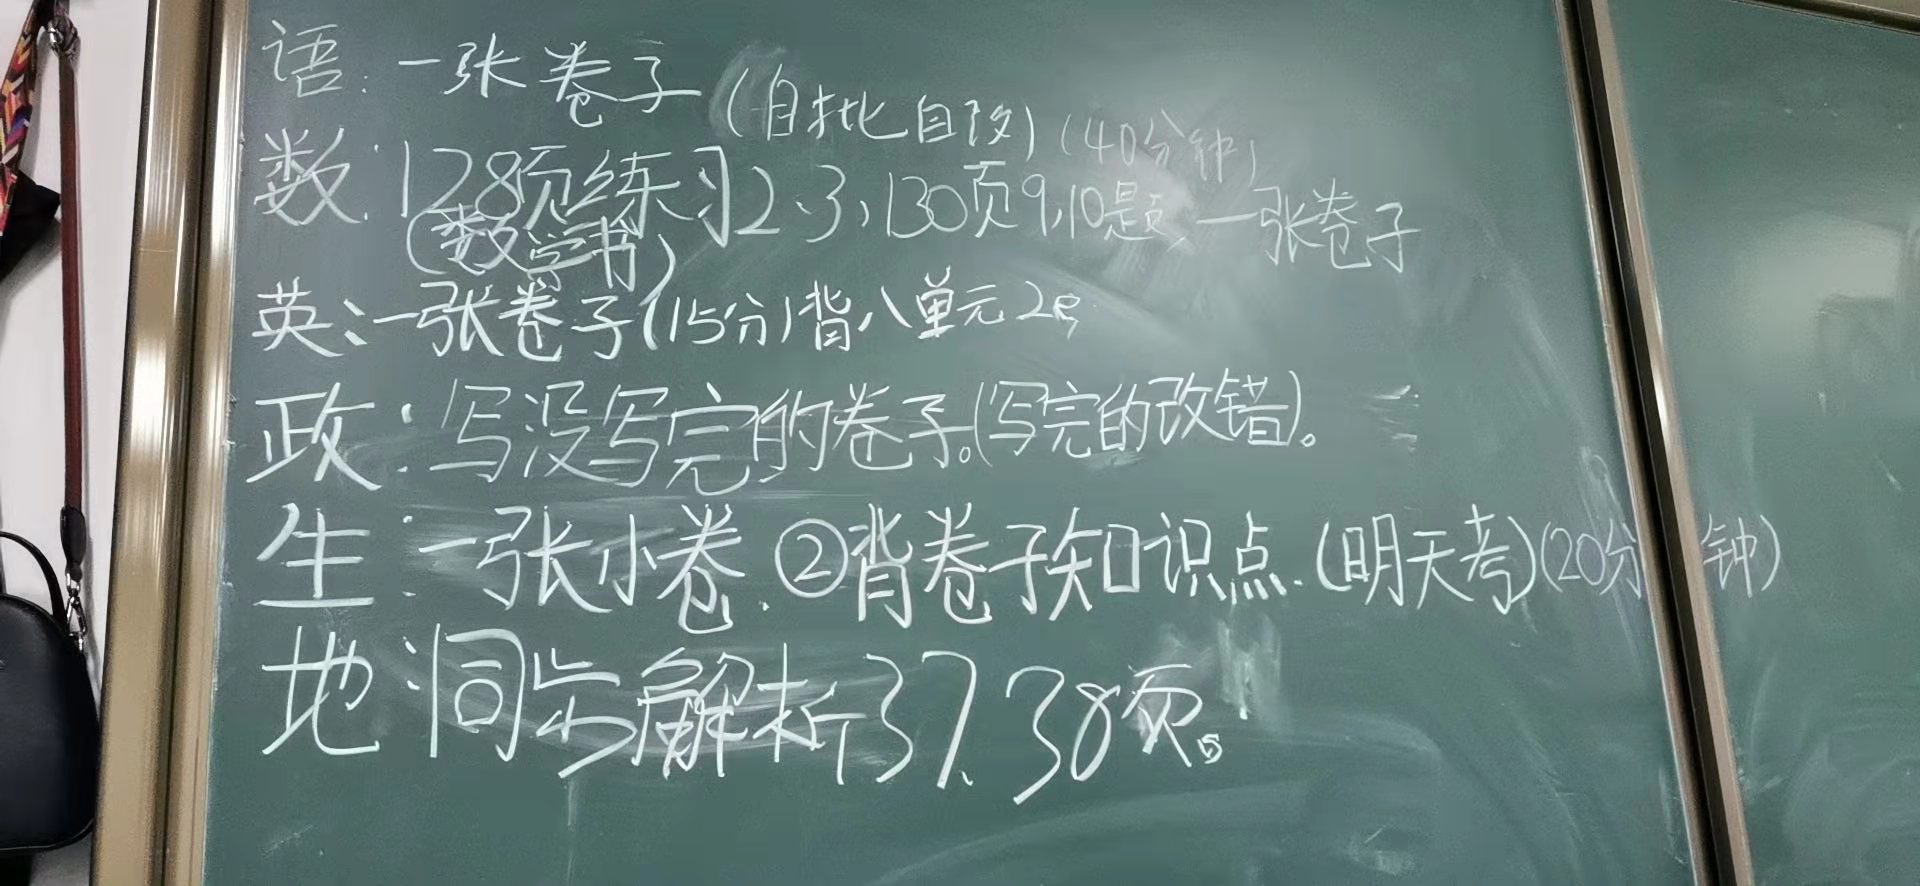 语:一张卷子(自批自改)(40分钟)
数:128页练习2、3,130页9,10题,一张卷子
(数学书)
英:一张卷子(15分)背八单元2e
政:写没写完的卷子。(写完的改错)。
生:一张小卷.②背卷子知识点.(明天考)(20分钟)
地:同步解析37、38页。